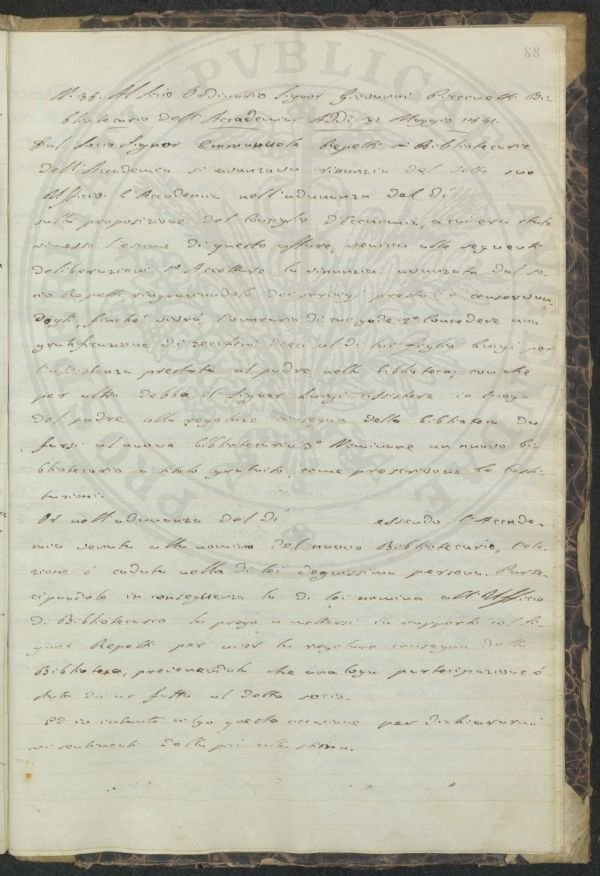 88
N. 36. Al Socio Ordinario Signor Giovanni Bi-
bliotecario dell'Accademia Addì 31 Maggio 1841.
Dal Socio Signor Emmanuele Repetti Bibliotecario
dell'Accademia si avanzava rinunzia del detto suo
Uffizio: L'Accademia nell'adunanza del dì
sulla proposizione del Consiglio d'Economia, a cui era stato
rimesso l'esame di questo affare, veniva alle seguenti
deliberazioni 1° Accettare la rinunzia avanzata dal So-
cio Repetti, ringraziandolo dei servigi prestati, e conservan-
dogli, finché vivrà l'onorario di cui gode 2° Concedere una
gratificazione di zecchini dieci al di lui figlio Luigi per
l'assistenza prestata al padre nella Biblioteca; con che
per altro debba il Signor Luigi assistere in luogo
del padre alla regolare consegna della biblioteca da
farsi al nuovo bibliotecario 3° Nominare un nuovo bi-
bliotecario a titolo gratuito, come prescrivono le Costi-
tuzioni.
Or nell'adunanza del dì essendo l'Accade-
mia venuta alla nomina del nuovo Bibliotecario, l'ele-
zione è caduta nella di lei degnissima persona. Parte-
cipandole in conseguenza la di lei nomina all'Ufficio
di Bibliotecario la prego a mettersi in rapporti col Si-
gnor Repetti per aver la regolare consegna della
Biblioteca, prevenendola che analoga partecipazione è
stata da me fatta al detto socio.
Ed io intanto colgo questa occasione per dichiararmi
coi sentimenti della più alta stima.
PVBLICAE